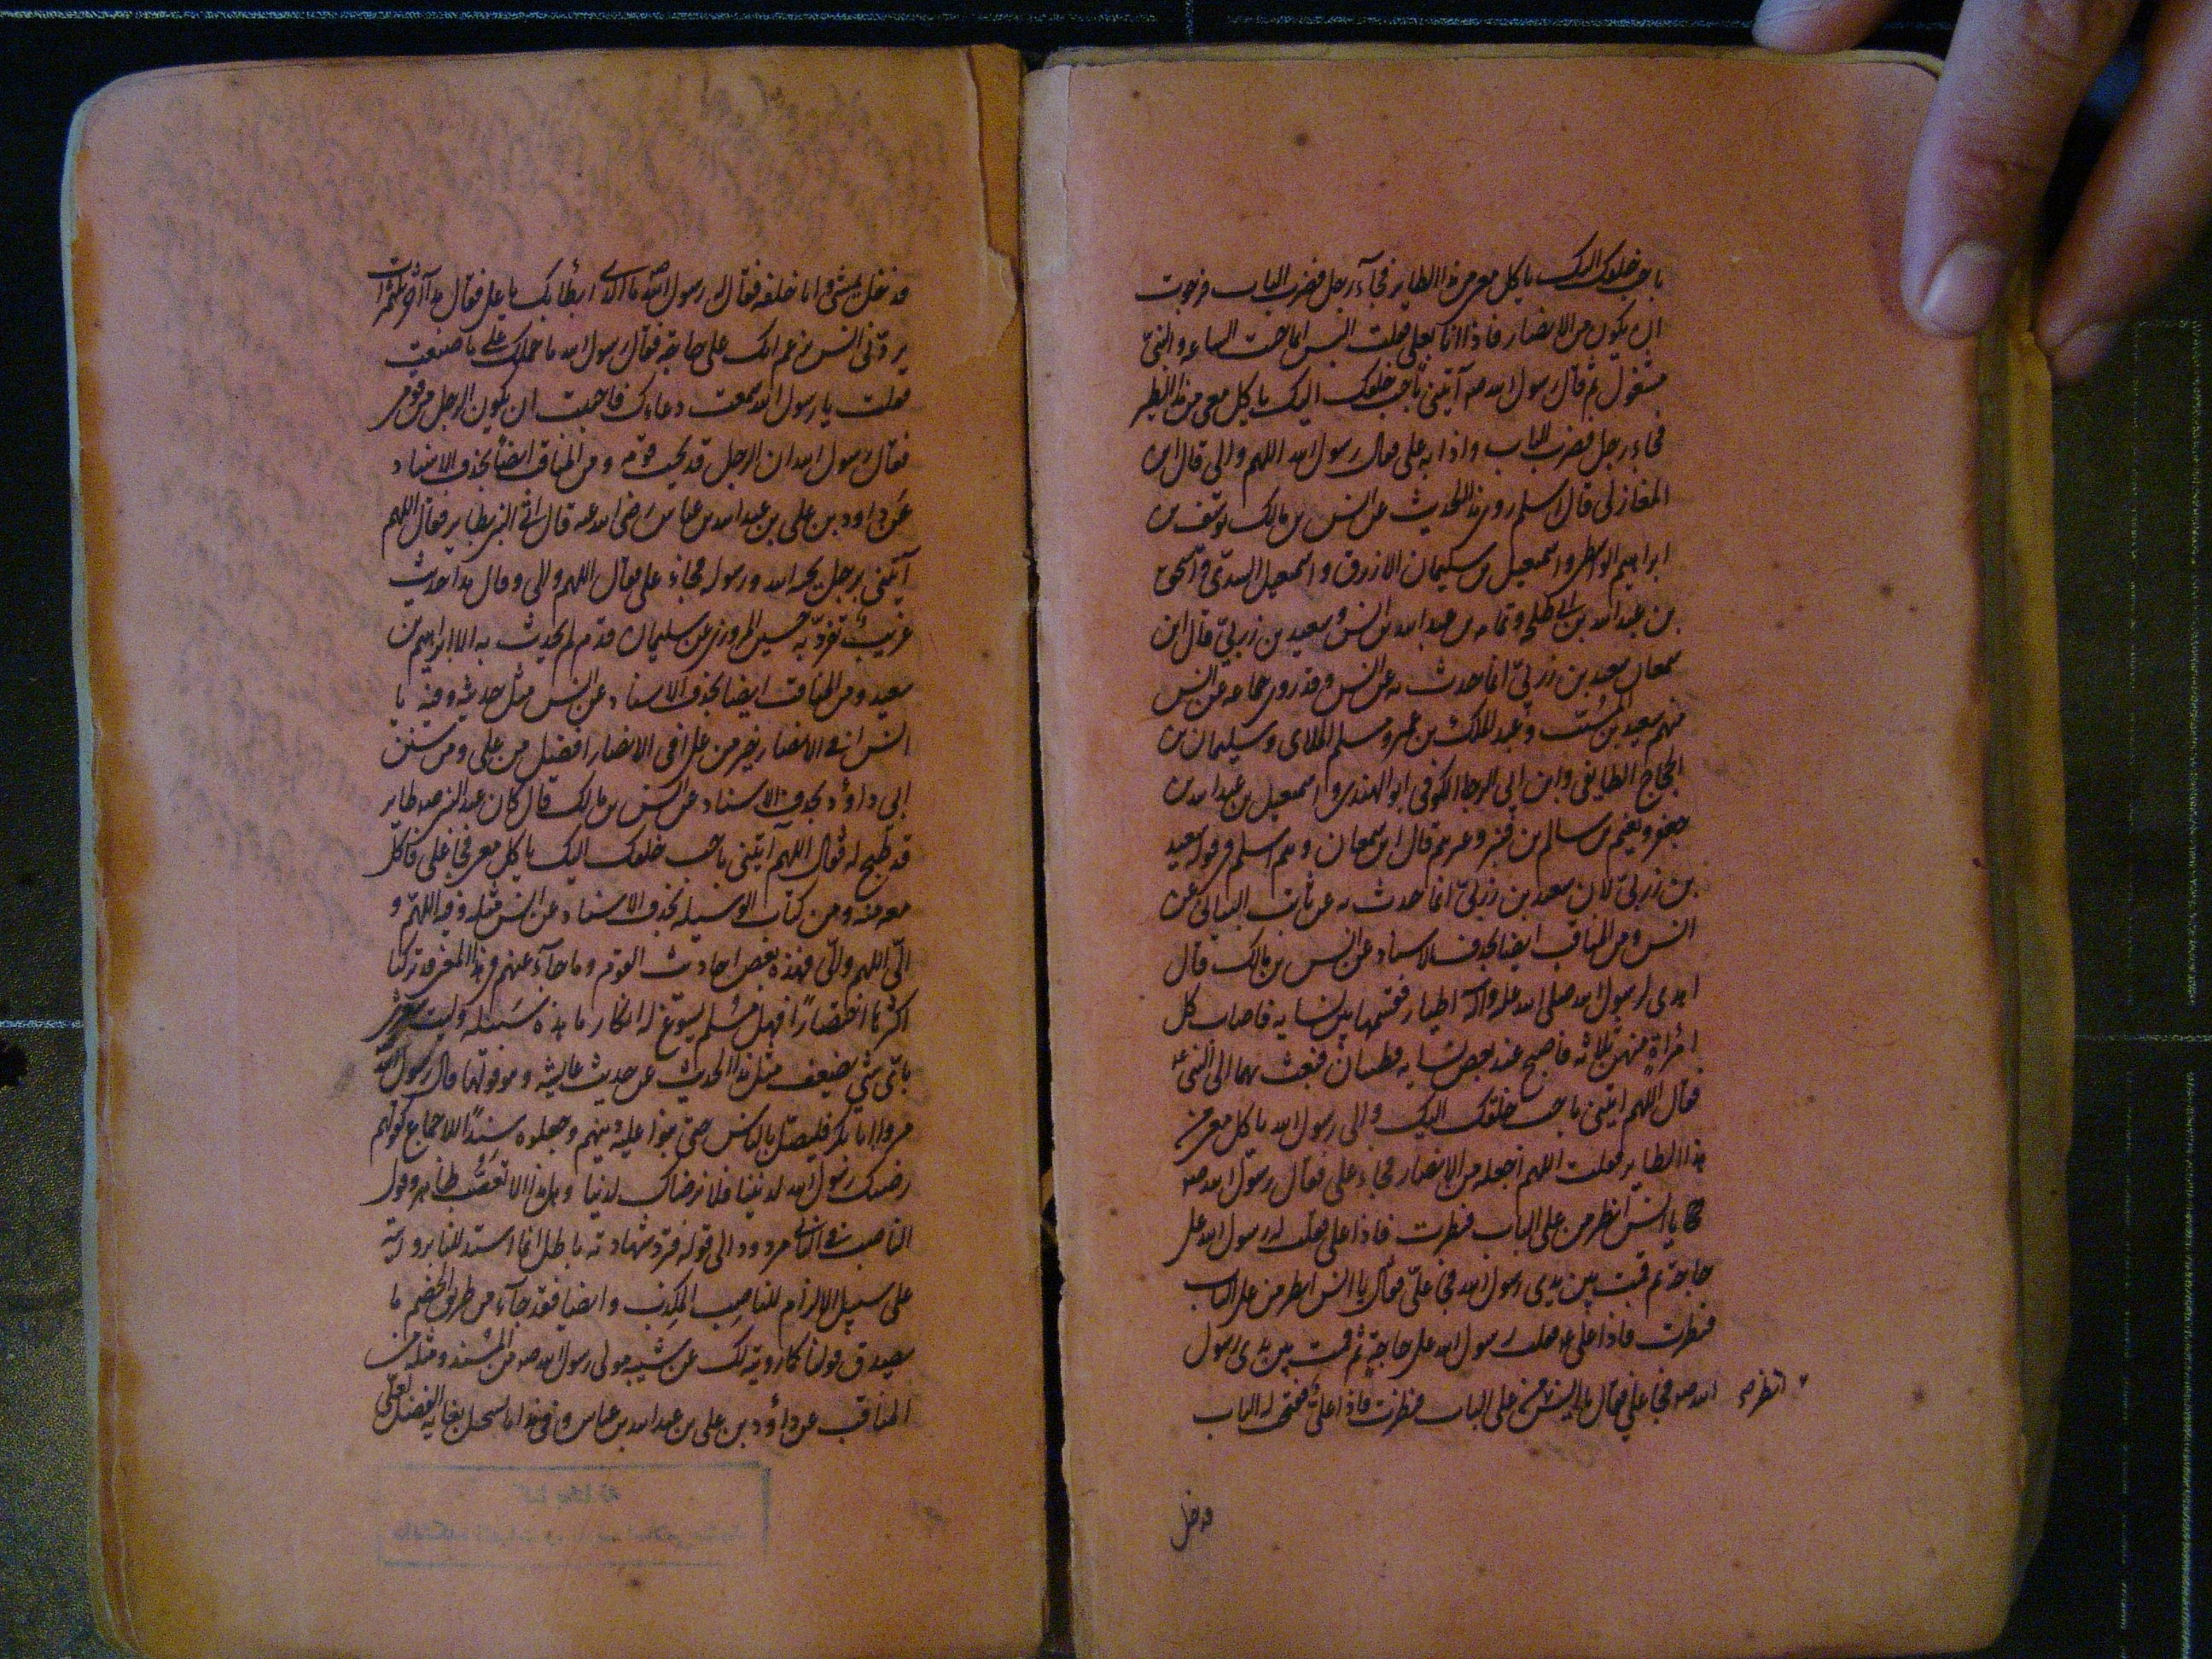 باحب خلقك اليك ياكل معي من هذا الطاير فجآء رجل فضرب الباب فرجوت
ان يكون من الانصار فاذا انا بعلي فقلت اليس انما جئت الساعه والنبيّ
مشغول ثم قال رسول الله صه آيتني باحب خلقك اليك ياكل معي من هذا الطير
فجاء رجل فضرب الباب واذا به علي فقال رسول الله اللهم والي قال ابن
المغازلي قال اسلم روى هذا الحديث عن انس بن مالك يوسف بن
ابراهيم الواسطي واسمعيل بن سليمان الازرق واسمعيل السدي واسحق
بن عبد الله بن ابي طلحه وثمامه بن عبد الله بن انس وسعيد بن زربيّ قال ابن
سمعان سعيد بن زربيّ انما حدث به عن انس وقد روى جماعه عن انس
منهم سعيد بن المسيّب وعبد الملك بن عمير ومسلم الملاى وسليمان بن
الحجاج الطايفي وابن ابي الرجا الكوفي ابو الهندي واسمعيل بن عبد الله بن
جعفر ويغنم بن سالم بن قنبر وغيرهم قال ابن سمعان وهم اسلم في قوله سعيد
بن زربيّ لان سعيد بن زربيّ انما حدث به عن ثابت البناني عن
انس ومن المناقب ايضا بحذف الاسناد عن انس بن مالك قال
اهدى لرسول الله صلى الله عليه وآله اطيار فقسمها بين نسايه فاصاب كل
امرأة منهن ثلاثه فاصبح عند بعض نسايه قطبان فبعث بهما الى النبي
فقال اللهم ايتني باحب خلقك اليك والى رسول الله ياكل معي من
هذا الطاير فقلت اللهم اجعله من الانصار فجاء علي فقال رسول الله صه
يا انس انظر من على الباب فنظرت فاذا علي فقلت له رسول الله على
حاجة ثم قمت بين يدى رسول الله فجا عليّ فقال يا انس انظر من على الباب
فنظرت فاذا علي فقلت رسول الله على حاجة ثم قمت بين يدى رسول
الله صه فجا علي فقال يا انس من على الباب فنظرت فاذا علي ففتحت له الباب
انظر صح
فدخل
فدخل يمشي وانا خلفه فقال له رسول الله ما الذي ابطأ بك يا علي فقال هذا آخر ثلث مرات
يردّني انس يزعم انك على حاجة فقال رسول الله ما حملك على ما صنعت
فقلت يا رسول الله سمعت دعاءك فاحببت ان يكون الرجل من قومي
فقال رسول الله ان الرجل قد يحب قومه ومن المناقب ايضا بحذف الاسناد
عن داود بن علي بن عبد الله بن عباس رضى الله عنه قال اتي النبي بطاير فقال اللهم
آيتني برجل يحبه الله ورسوله فجاء علي فقال اللهم والي وقال هذا حديث
غريب تفرد به حسين المروزي عن سليمان بن قرم لم يحدث به الا ابراهيم بن
سعيد ومن المناقب ايضا بحذف الاسناد عن انس مثل حديثه وفيه يا
انس أفي الانصار خير من علي أفي الانصار افضل من علي ومن سنن
ابي داؤد بحذف الاسناد عن انس بن مالك قال كان عند النبي صه طاير
قد طبخ له فقال اللهم آيتني باحب خلقك اليك ياكل معي فجا علي فاكل
معه منه ومن كتاب الوسيلة بحذف الاسناد عن انس مثله وفيه اللهم و
اليّ اللهم واليّ فهذه بعض احاديث القوم وما جآء عنهم في هذا المعنى قد تركنا
اكثرها اختصارًا فهل مسلم يسوغ له انكار ما هذه سبيله وليت شعري
بايّ شي يضعف مثل هذا الحديث عن حديث عايشه وهو قولها قال رسول الله
مروا ابا بكر فليصلّ بالناس حتى بنوا عليه دينهم وجعلوه سندًا للاجماع كقولهم
رضيك رسول الله لديننا فلا نرضاك لدنيانا وهل هذا الا تعصّب ظاهر وقول
الناصب في الناس مردود الى قوله فردّ شهادته باطل انما استدللنا بروايته
على سبيل الالزام للناصب المكذب وايضا فقد جآء من طريق الخصم ما
يصدق قولنا كما رويته لك عن سفينه مولى رسول الله صه من المسند ومثله من
المناقب عن داؤد بن علي بن عبد الله بن عباس